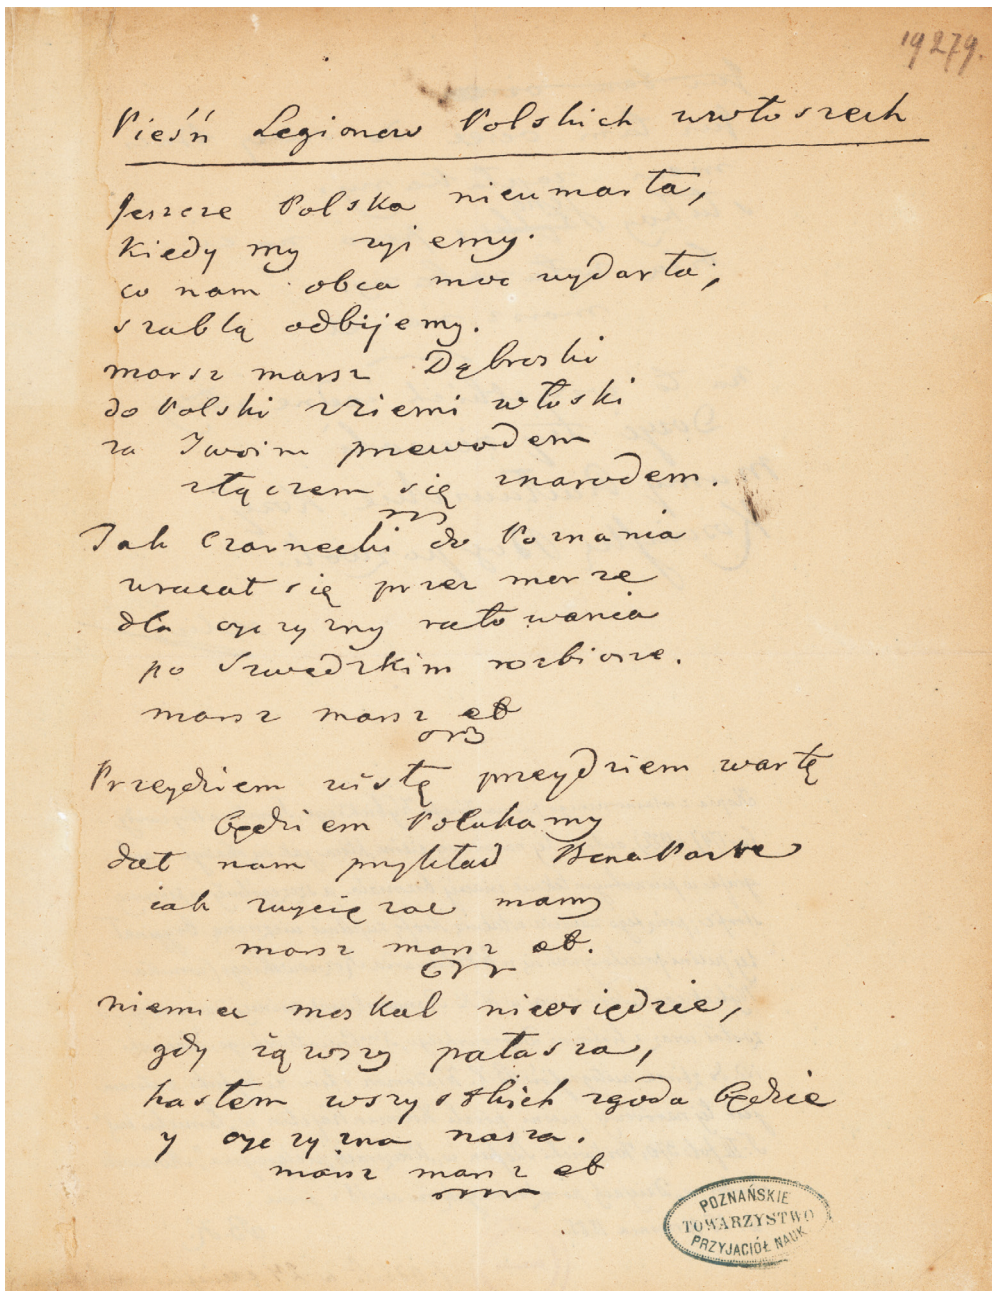 19279.
Pieśń Legionow Polskich wewłoszech
Jeszcze Polska nieumarła,
Kiedy my zyiemy.
co nam obca moc wydarła,
szablą odbijemy.
marsz marsz Dąbroski
do Polski zZiemi włoski
za Twoim przewodem
złączem się znarodem.
Jak Czarnecki do Poznania
wracał się przez morze
dla oyczyzny ratowania
po Szwedzkim rozbiorze.
marsz marsz etc
Przeydziem wisłę przeydziem wartę
będziem Polakamy
dał nam przykład BonaParte
iak zwycięzac mamy
marsz marsz etc.
niemiec moskal nieosiędzie,
gdy iąwszy pałasza,
hasłem wszystkich zgoda będzie
y oyczyzna nasza.
marsz marsz etc
POZNAŃSKIE
TOWARZYSTWO
PRZYJACIÓŁ NAUK